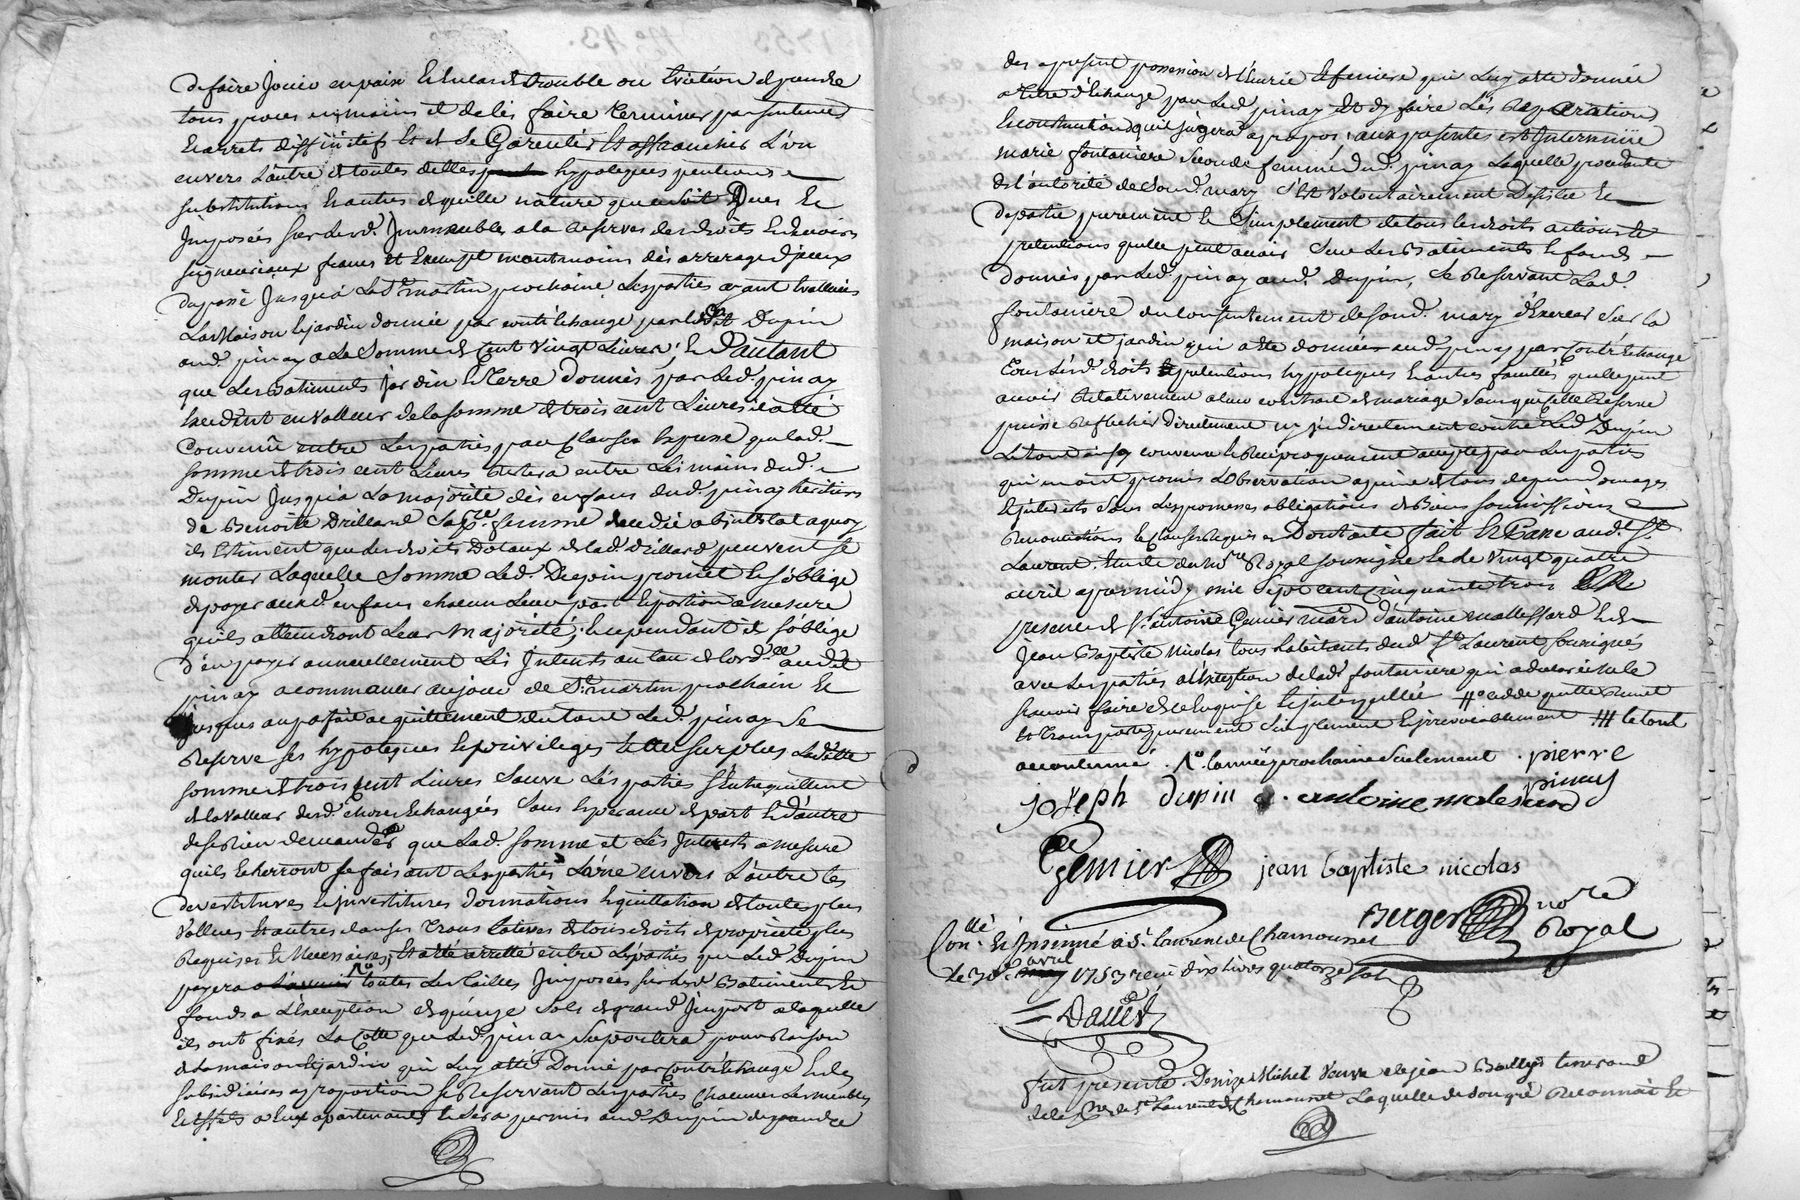 de faire Jouir en paix Et sans trouble ou Eviction et prendre
tous proces en mains et de les faire terminer par sentences
Et arrets diffinitifs Et de se Garentir Et affranchir L'un
envers L'autre de toutes dettes hypoteques pentions
substitutions Et autres de quelle nature que ce soit Dues Et
Imposées sur lesd. Immeubles a la reserve des droits Et devoirs
seigneuriaux francs Et Exempt neantmoins des arrerages d'jceux
du passé Jusqu'à La St martin prochaine Les parties ayant Evalluées
La Maison Et jardin donnée par contr'Echange par led. Dupin
aud. pinay a La Somme de Cent Vingt Livres ; Et D'autant
que Les Batiments Jardin Et Terre Donnés par Led. pinay
Excedent en Valleur de la somme de trois cent Livres il a été
Convenu entre Les parties par Clauses Expresse que lad.
somme de trois cent Livres restera entre Les mains dud.
Dupin Jusqu'a La majorité des enfans dud. pinay heritiers
de Benoite Drillard Sa pre. femme decedée abintestat a quoy
ils Estiment que Les droits Dotaux de lad. drillard peuvent se
monter Laquelle Somme Led. Dupin promet Et s'oblige
de payer auxd. enfans chacun Leur part Et portion a mesure
qu'ils attendront Leur Majorité ; Et cependant Et s'oblige
D'en payer annuellement Les Interets au taux de l'ord.ce audit
pinay a commancer au jour de St. martin prochain Et
jusques au parfait acquittement du tout Led. pinay Se
Reserve ses hypoteques Et privileges Et au surplus Ladite
somme de trois Cent Livres Sauve Les parties s'Entrequittent
de la Valleur desd. choses Echangées Sans Esperance de part Et d'autre
de se Rien demander que Lad. somme et Les Interets a mesure
qu'ils Echerront se faisant Les parties L'une Envers L'autre les
devestitures Et jnvestitures Donnations Et quittation de toutes plus
Vallues Et autres clauses Translatives de tous droits de proprieté plus
Requises Et Necessaires, Et a été arretté entre Les parties que Led. Dupin
payera toutes Les Tailles Imposées sur lesd. Batiments Et
fonds a L'Exeption de quinze Sols de grand Import a laquelle
ils ont fixés La Cotte que Led. pinay Suportera pour Raison
de la maison Et jardin qui Luy a été Donné par Contr'Echange Et les
Subsidiaires a proportion Se Reservant Les parties Chacune Les meubles
Et Effets a Eux apartenants Et Sera permis aud. Dupin de prendre
des a present possession de l'Ecurie Et feniere qui Luy a été donnée
a titre d'Echange par Led. pinay Et d'y faire Les Reparations
Et constructions qu'il jugera apropos ; aux presentes est Intervenüe
marie fontaniere Seconde femme dud. pinay Laquelle procedante
de l'autorité de Sond. mary s'Est Volontairement Desistée Et
Departie purement Et Simplement de tous Les droits actions Et
pretentions qu'elle peut avoir Sur Les Batiments Et fonds
Donnés par Led. pinay aud. Dupin, Se Reservant Lad.
fontaniere du consentement de sond. mary d'Exercer Sur la
maison et jardin qui a été donnée aud. pinay par Contr'Echange
Tous Lesd. droits Et pretentions hypoteques Et autres facultés qu'elle peut
avoir Relativement a leur contrat de mariage sans que cette Reserve
puisse Reflechir directement ny jndirectement contre Led. Dupin
Le tout ainsy convenu Et Reciproquement accepté par Les parties
qui en ont promis L'observation a peine de tous depens domages
Et jnterets Sous Les promesses obligations de Biens Soumissions
Renonciations Et Clauses Requises Dont acte fait Et Passé aud. St.
Laurent, Etude du No.re Royal soussigné Le de Vingt quatre
avril apres midy mil Sept Cent Cinquante trois
presence de Sr. antoine Gemier mard. d'antoine mallessard Et de
Jean Baptiste Nicolas tous habitants dud. St. Laurent soussignés
avec Les parties a L'Exeption de lad. fontaniere qui a declaré ne le
sçavoir faire de ce Enquise Et jnterpellée # cede quitte Remet
Et transporte purement Simplement Et jrrevocablement ### le tout
. l'année prochaine seulement . pierre
pinay
Joseph Dupin . antoine malessard
Gemier jean baptiste nicolas
Berger nore
Royal
Con.llé Et Insinué a St. laurent de Chamousset
le 30e avril 1753 receu dix livres quatorze sols
Dauer
fut presente Denize Michel Veuve de jean Bailly tisserand
de la pse de St. Laurent de Chamousset Laquelle de son gré Reconnoit Et